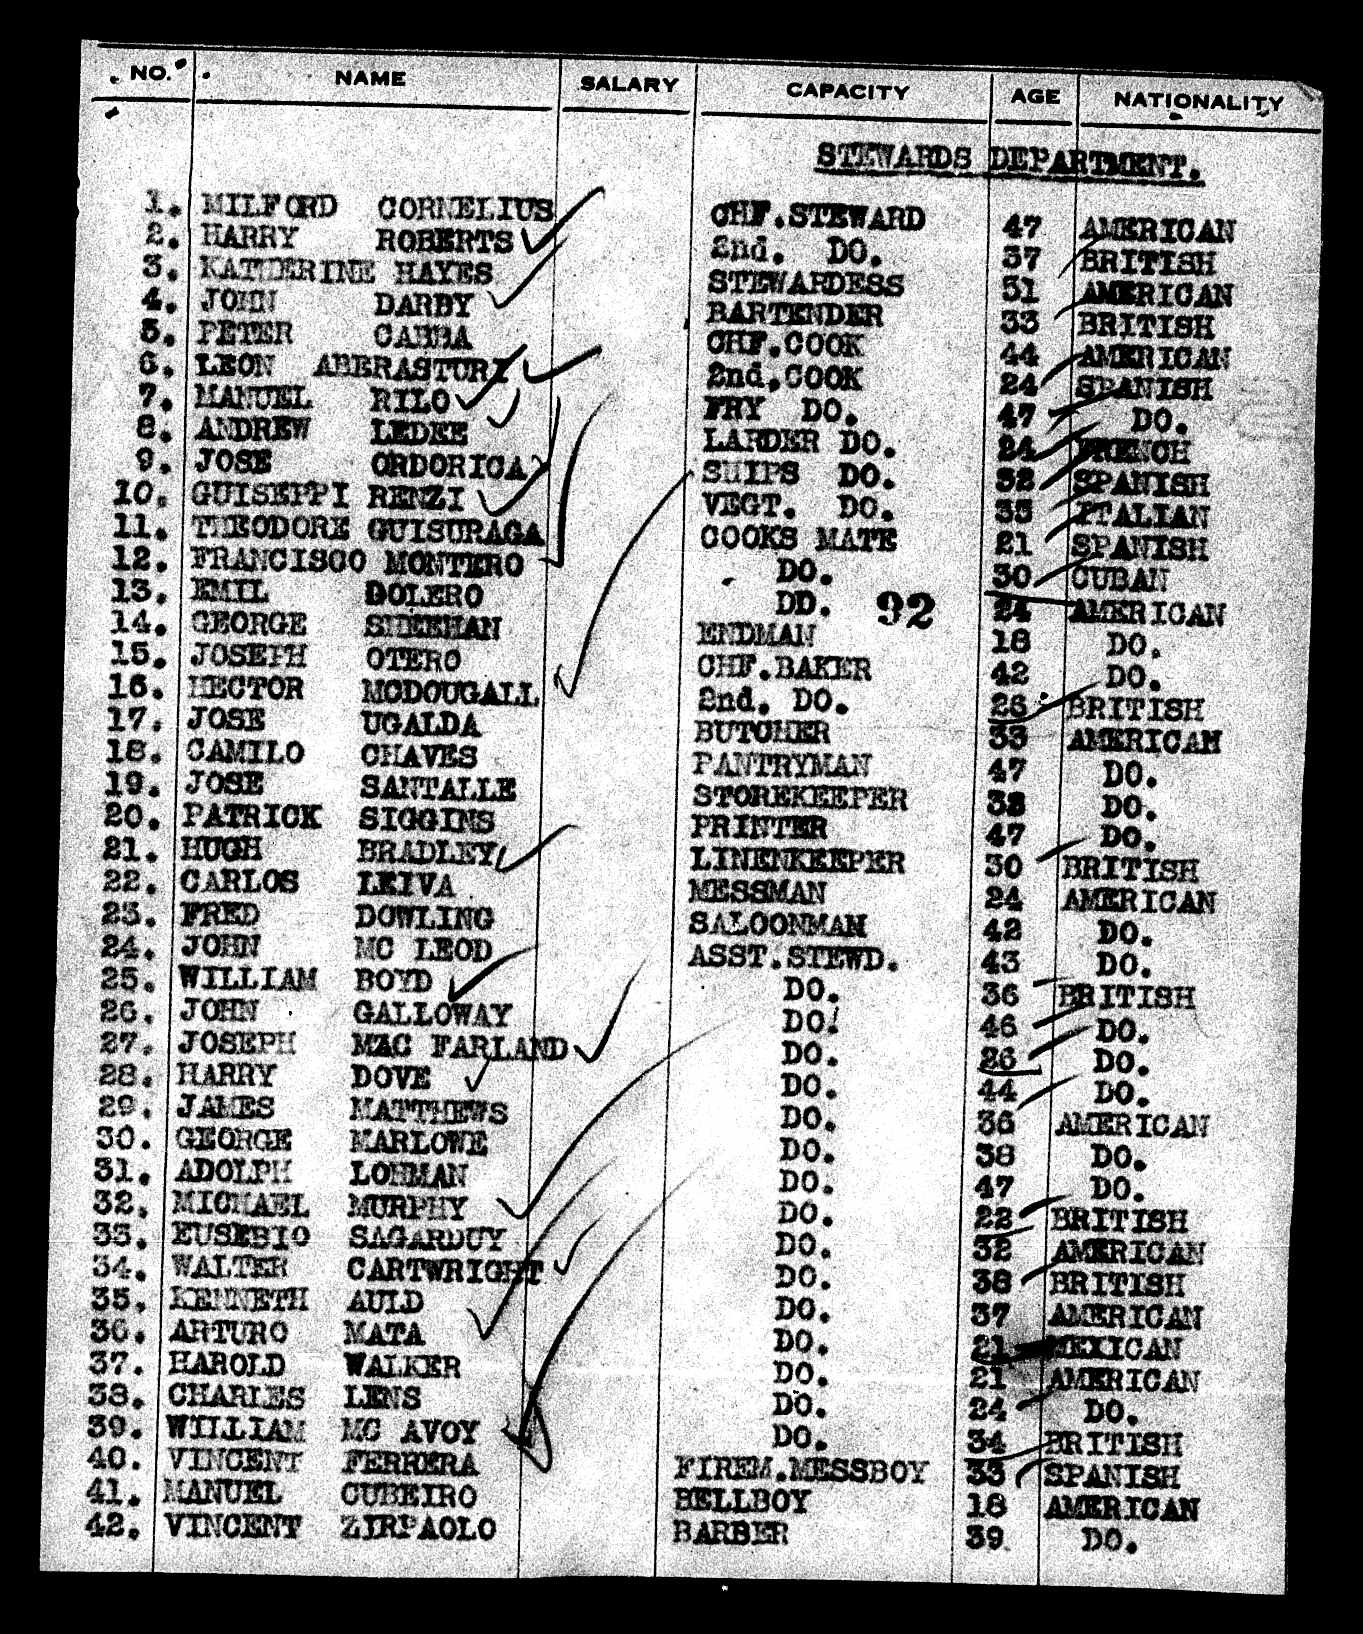 NO. NAME SALARY CAPACITY AGE NATIONALITY
STEWARDS DEPARTMENT.
1. MILFORD CORNELIUS CHF.STEWARD 47 AMERICAN
2. HARRY ROBERTS 2nd. DO. 37 BRITISH
3. KATHERINE HAYES STEWARDESS 31 AMERICAN
4. JOHN DARBY BARTENDER 33 BRITISH
5. PETER CABBA CHF.COOK 44 AMERICAN
6. LEON ABERASTURI 2nd.COOK 24 SPANISH
7. MANUEL RILO FRY DO. 47 DO.
8. ANDREW LEDEE LARDER DO. 24 FRENCH
9. JOSE ORDORICA SHIPS DO. 32 SPANISH
10. GUISEPPI RENZI VEGT. DO. 35 ITALIAN
11. THEODORE GUISURAGA COOKS MATE 21 SPANISH
12. FRANCISCO MONTERO DO. 30 CUBAN
13. EMIL BOLERO DD. 92 24 AMERICAN
14. GEORGE SHEEHAN ENDMAN 18 DO.
15. JOSEPH OTERO CHF.BAKER 42 DO.
16. HECTOR MCDOUGALL 2nd. DO. 26 BRITISH
17. JOSE UGALDA BUTCHER 33 AMERICAN
18. CAMILO CHAVES PANTRYMAN 47 DO.
19. JOSE SANTALLE STOREKEEPER 38 DO.
20. PATRICK SIGGINS PRINTER 47 DO.
21. HUGH BRADLEY LINENKEEPER 30 BRITISH
22. CARLOS LEIVA MESSMAN 24 AMERICAN
23. FRED DOWLING SALOONMAN 42 DO.
24. JOHN MC LEOD ASST.STEWD. 43 DO.
25. WILLIAM BOYD DO. 36 BRITISH
26. JOHN GALLOWAY DO. 46 DO.
27. JOSEPH MAC FARLAND DO. 26 DO.
28. HARRY DOVE DO. 44 DO.
29. JAMES MATTHEWS DO. 36 AMERICAN
30. GEORGE MARLOWE DO. 38 DO.
31. ADOLPH LOHMAN DO. 47 DO.
32. MICHAEL MURPHY DO. 22 BRITISH
33. EUSEBIO SAGARDUY DO. 32 AMERICAN
34. WALTER CARTWRIGHT DO. 38 BRITISH
35. KENNETH AULD DO. 37 AMERICAN
36. ARTURO MATA DO. 21 MEXICAN
37. HAROLD WALKER DO. 21 AMERICAN
38. CHARLES LENS DO. 24 DO.
39. WILLIAM MC AVOY DO. 34 BRITISH
40. VINCENT FERRERA FIREM.MESSBOY 33 SPANISH
41. MANUEL CUBEIRO BELLBOY 18 AMERICAN
42. VINCENT ZIRPAOLO BARBER 39 DO.